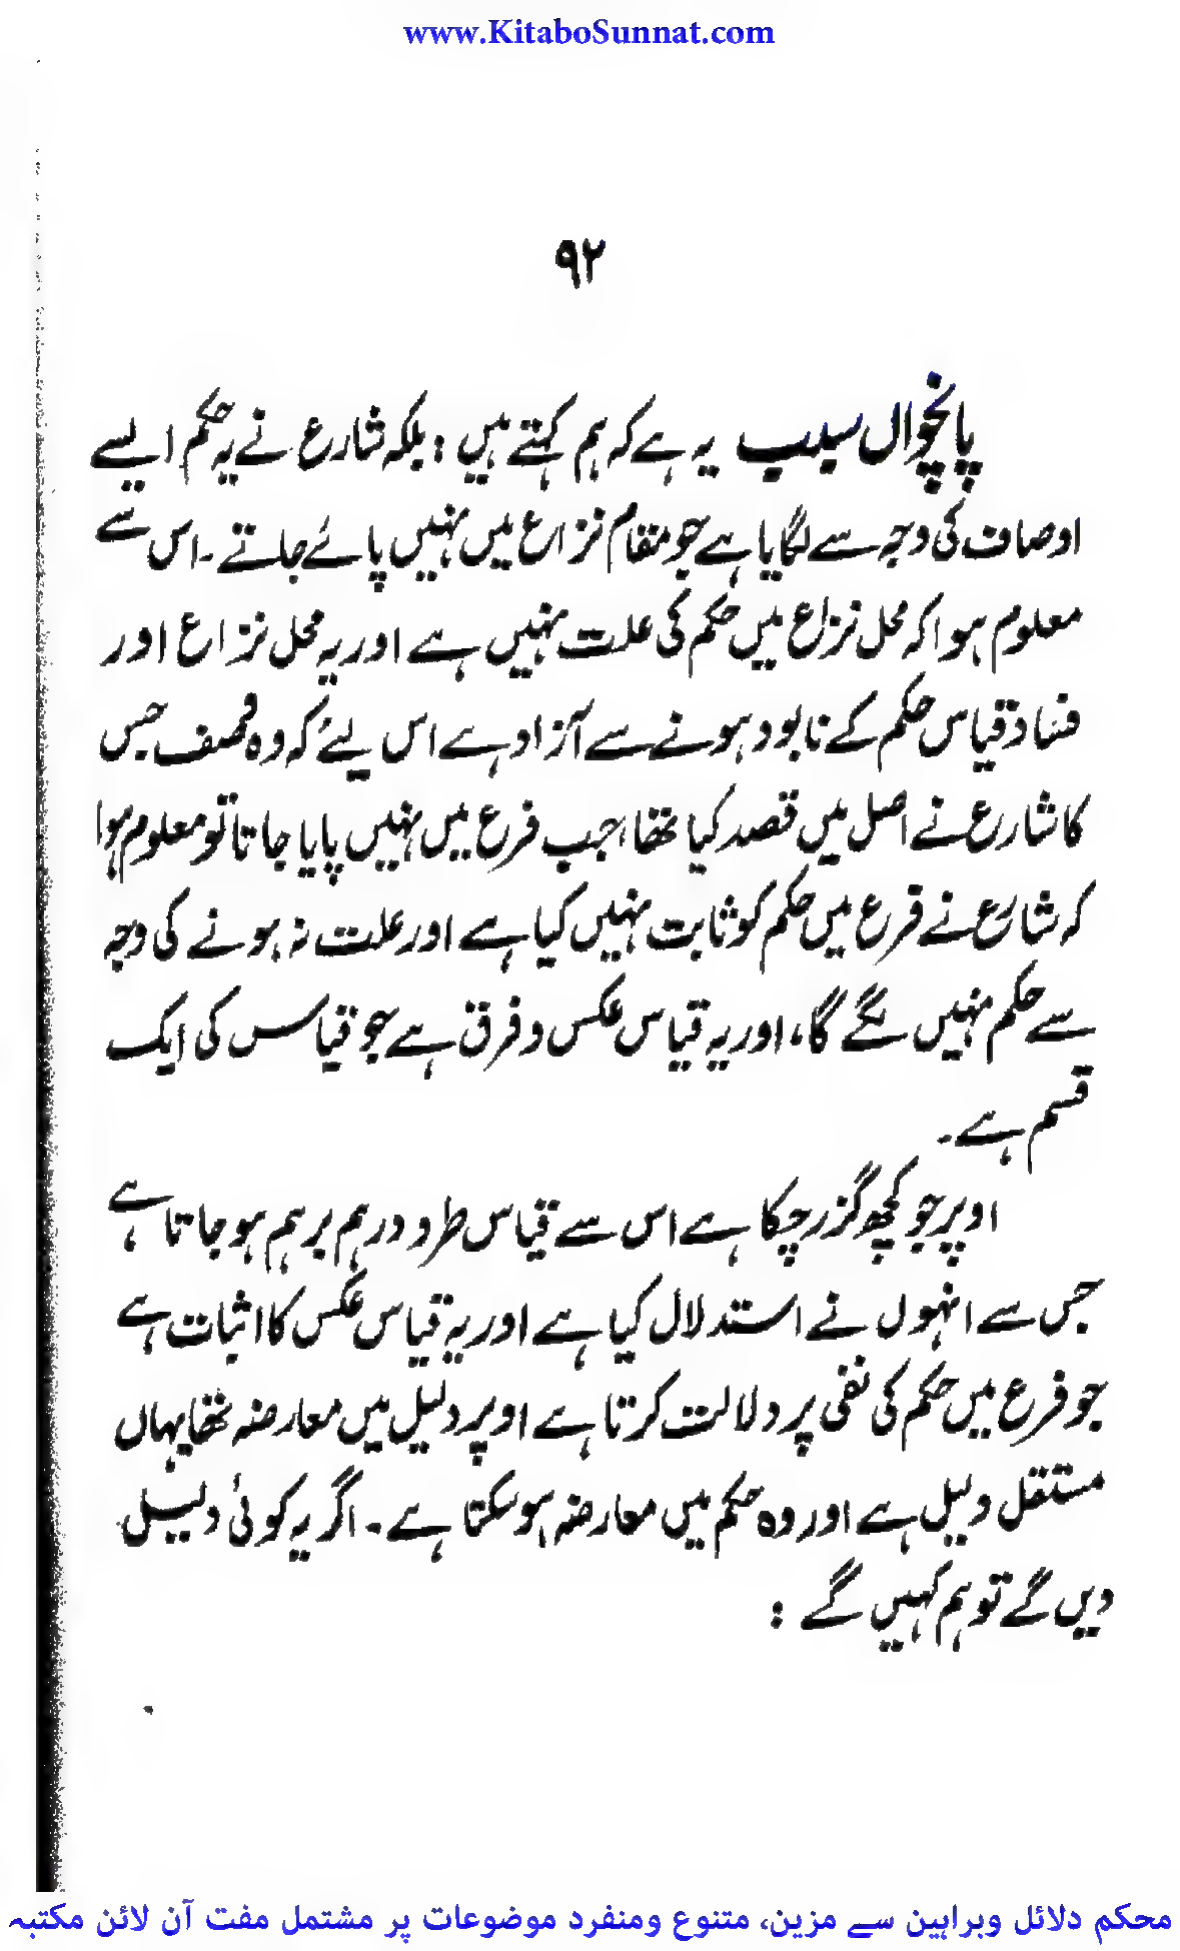 www.KitaboSunnat.com
۹۲
پانچواں سبب یہ ہے کہ ہم کہتے ہیں : بلکہ شارع نے یہ حکم ایسے
اوصاف کی وجہ سے لگایا ہے جو مقام نزاع میں نہیں پائے جاتے ۔ اس سے
معلوم ہوا کہ محل نزاع میں حکم کی علت نہیں ہے اور یہ محل نزاع اور
قیاس حکم کے نابود ہونے سے آزاد ہے اس لیئے کہ وہ جس
کا شارع نے اصل میں قصد کیا تھا، جب فرع میں نہیں پایا جاتا تو معلوم ہوا
کہ شارع نے فرع میں حکم کو ثابت نہیں کیا ہے اور علت نہ ہونے کی وجہ
سے حکم نہیں لگے گا، اور یہ قیاس عکس و فرق ہے جو قیاس کی ایک
قسم ہے ۔
اوپر جو کچھ گزر چکا ہے اس سے قیاس طرد درہم برہم ہو جاتا ہے
جس سے انہوں نے استدلال کیا ہے اور یہ قیاس عکس کا اثبات ہے
جو فرع میں حکم کی نفی پر دلالت کرتا ہے اوپر دلیل میں معارضہ تھا یہاں
مستقل دلیل ہے اور وہ حکم میں معارضہ ہو سکتا ہے ۔ اگر یہ کوئی دلیل
دیں گے تو ہم کہیں گے :
محکم دلائل وبراہین سے مزین، متنوع ومنفرد موضوعات پر مشتمل مفت آن لائن مکتبہ